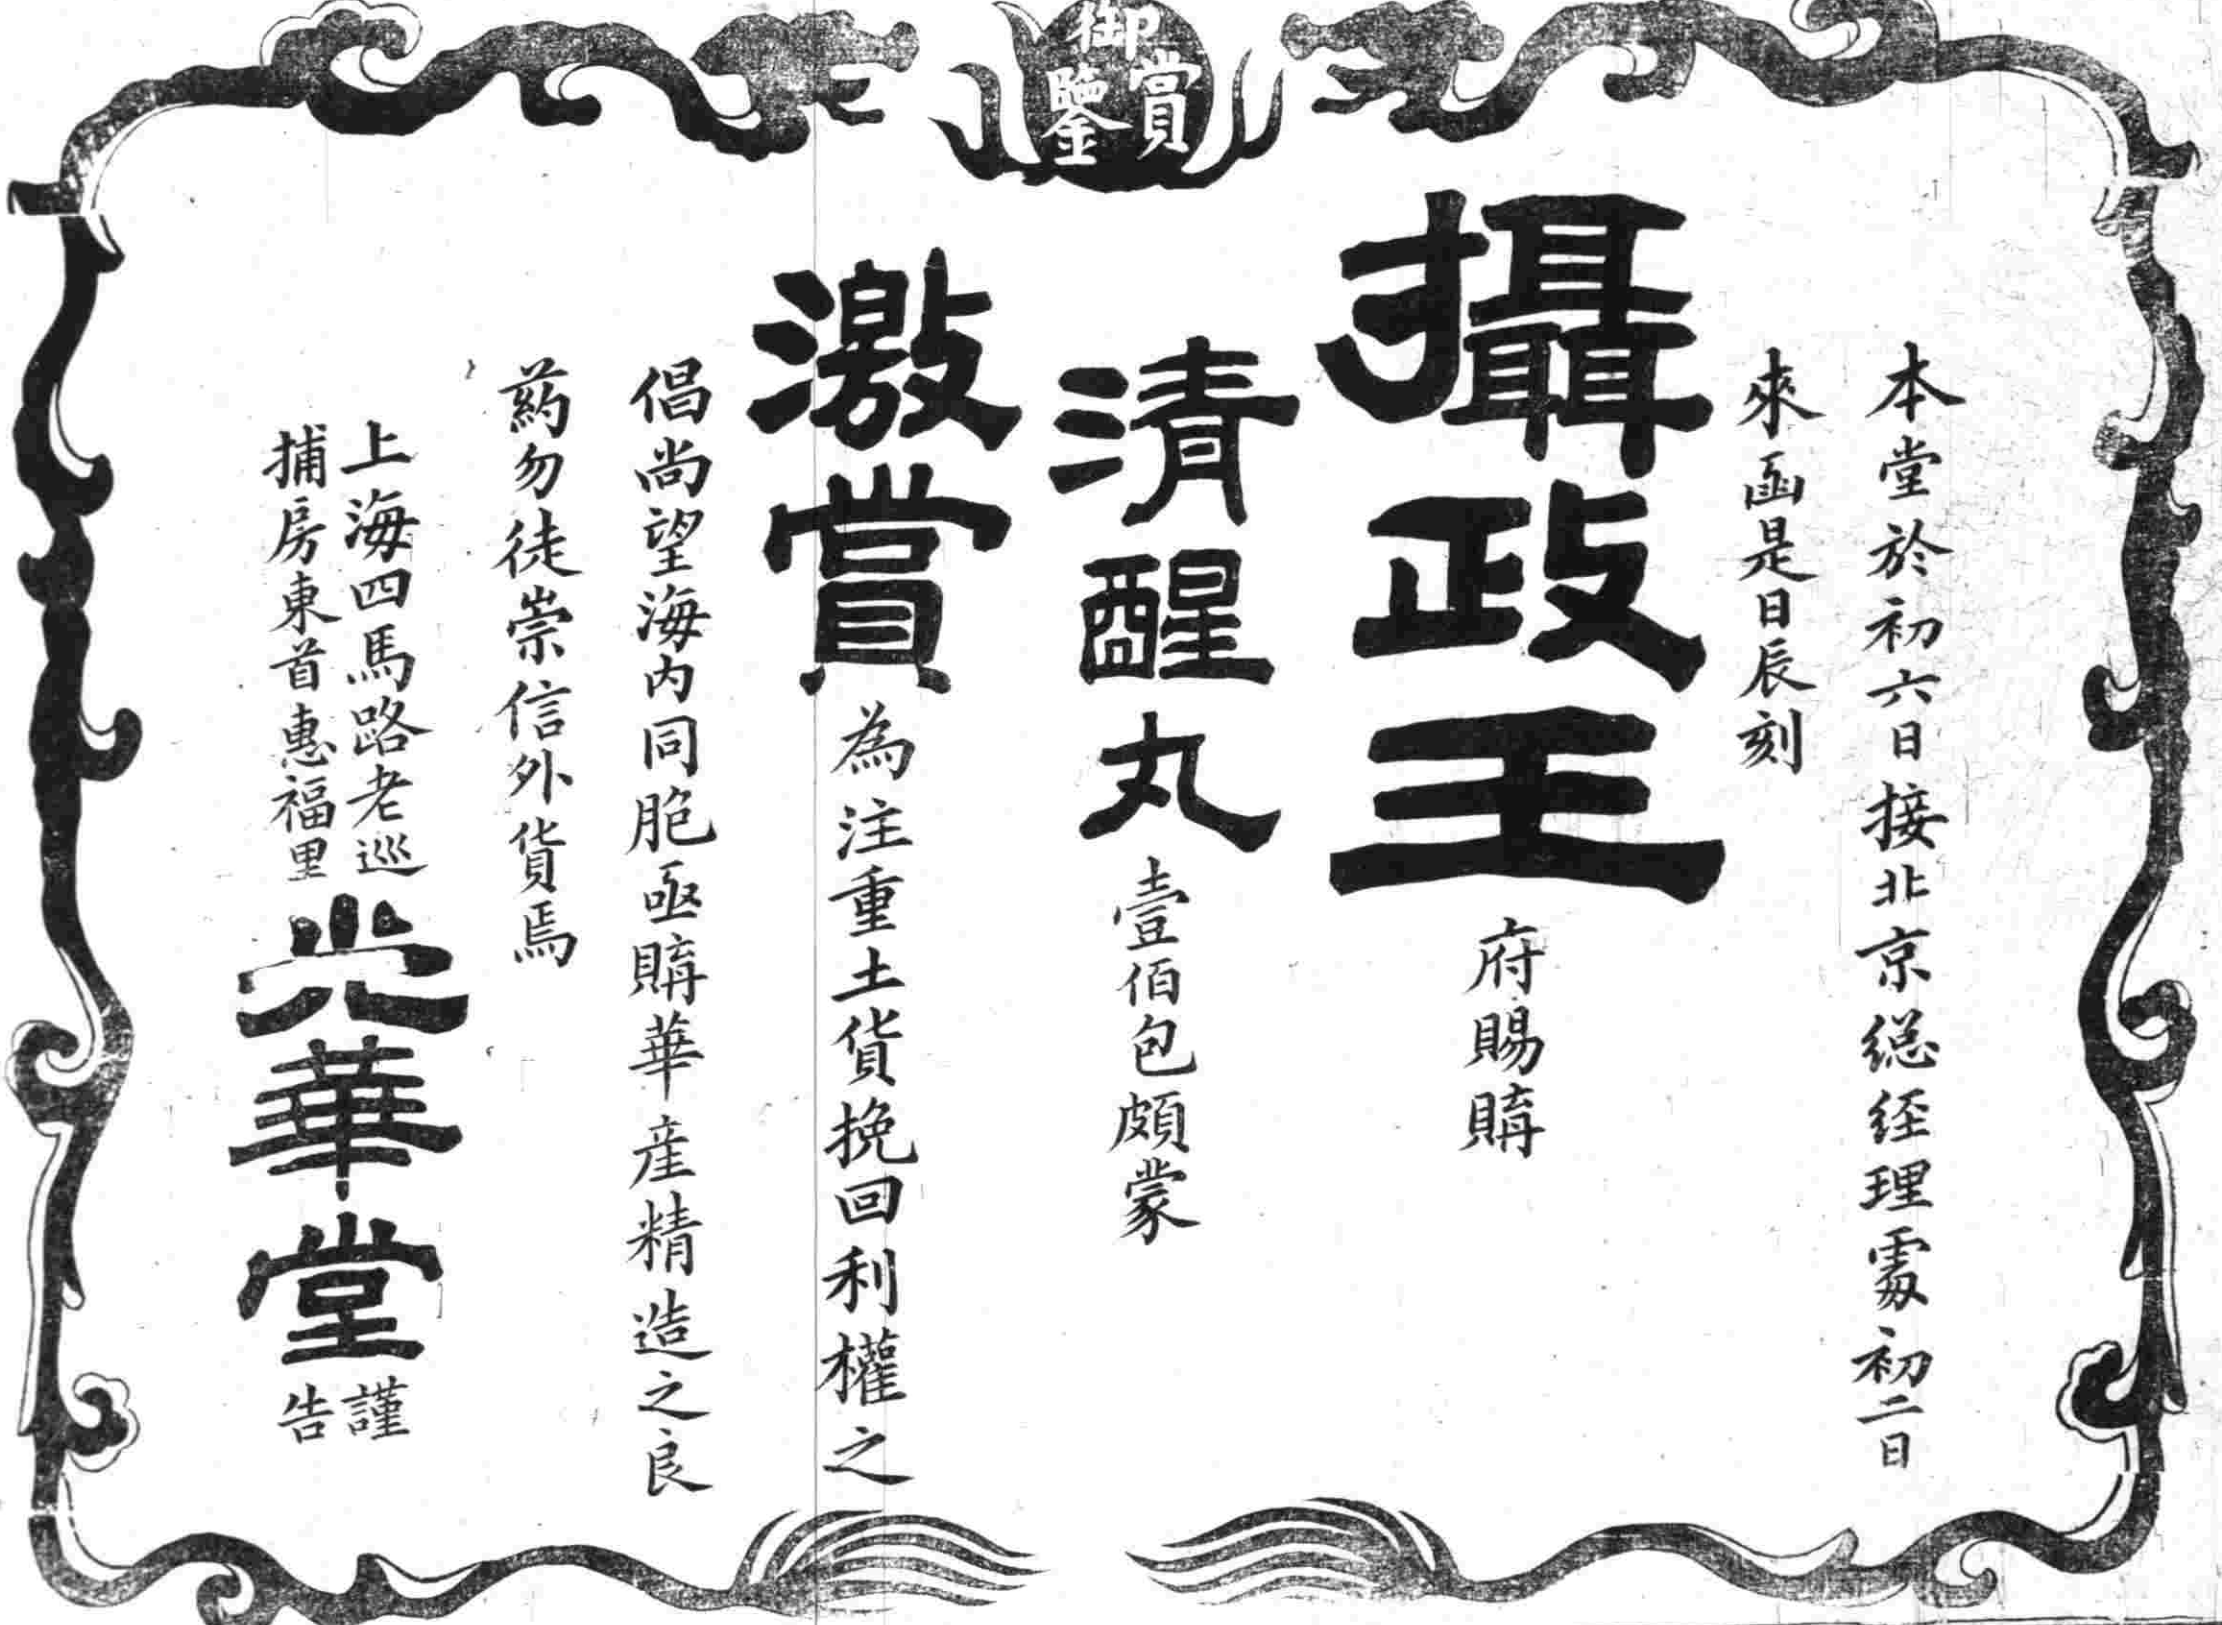 御賞鑒
本堂於初六日接北京総経理處初二日
來函是日辰刻
攝政王府賜購
清醒丸壹佰包頗蒙
激賞為注重土貨挽回利權之
倡尚望海内同胞亟購華産精造之良
药勿徒崇信外貨焉
上海四馬路老巡
捕房東首惠福里
光華堂
謹告